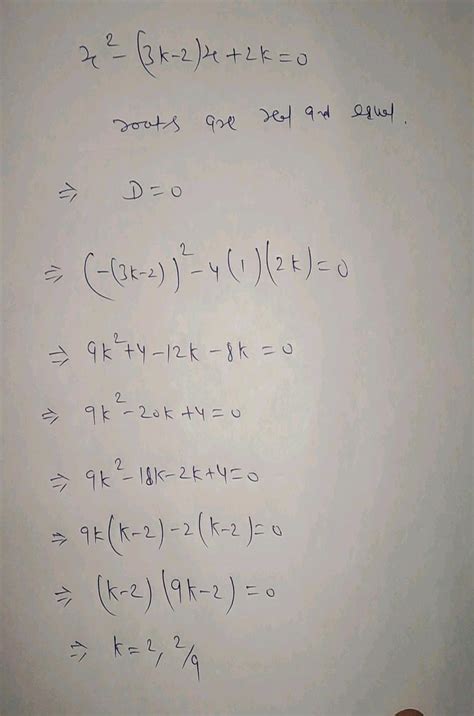 x² - (3k-2)x + 2k = 0
roots are real and equal.
⇒ D = 0
⇒ (-(3k-2))² - 4(1)(2k) = 0
⇒ 9k² + 4 - 12k - 8k = 0
⇒ 9k² - 20k + 4 = 0
⇒ 9k² - 18k - 2k + 4 = 0
⇒ 9k(k-2) - 2(k-2) = 0
⇒ (k-2)(9k-2) = 0
⇒ k = 2, 2/9